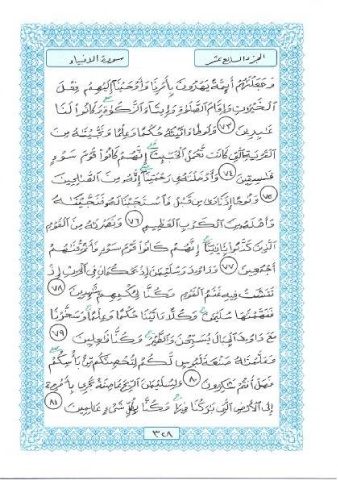 الجزء السابع عشر سورة الأنبياء
وجعلناهم أئمة يهدون بأمرنا وأوحينا إليهم فعل
الخيرات وإقام الصلاة وإيتاء الزكوة وكانوا لنا
عابدين ٧٣ ولوطا آتيناه حكما وعلما ونجيناه من
القرية التي كانت تعمل الخبائث إنهم كانوا قوم سوء
فاسقين ٧٤ وأدخلناه في رحمتنا إنه من الصالحين
٧٥ ونوحا إذ نادى من قبل فاستجبنا له فنجيناه
وأهله من الكرب العظيم ٧٦ ونصرناه من القوم
الذين كذبوا بآياتنا إنهم كانوا قوم سوء فأغرقناهم
أجمعين ٧٧ وداود وسليمان إذ يحكمان في الحرث إذ
نفشت فيه غنم القوم وكنا لحكمهم شاهدين ٧٨
ففهمناها سليمان وكلا آتينا حكما وعلما وسخرنا
مع داود الجبال يسبحن والطير وكنا فاعلين ٧٩
وعلمناه صنعة لبوس لكم لتحصنكم من بأسكم
فهل أنتم شاكرون ٨٠ ولسليمان الريح عاصفة تجري بأمره
إلى الأرض التي باركنا فيها وكنا بكل شيء عالمين ٨١
٣٢٨